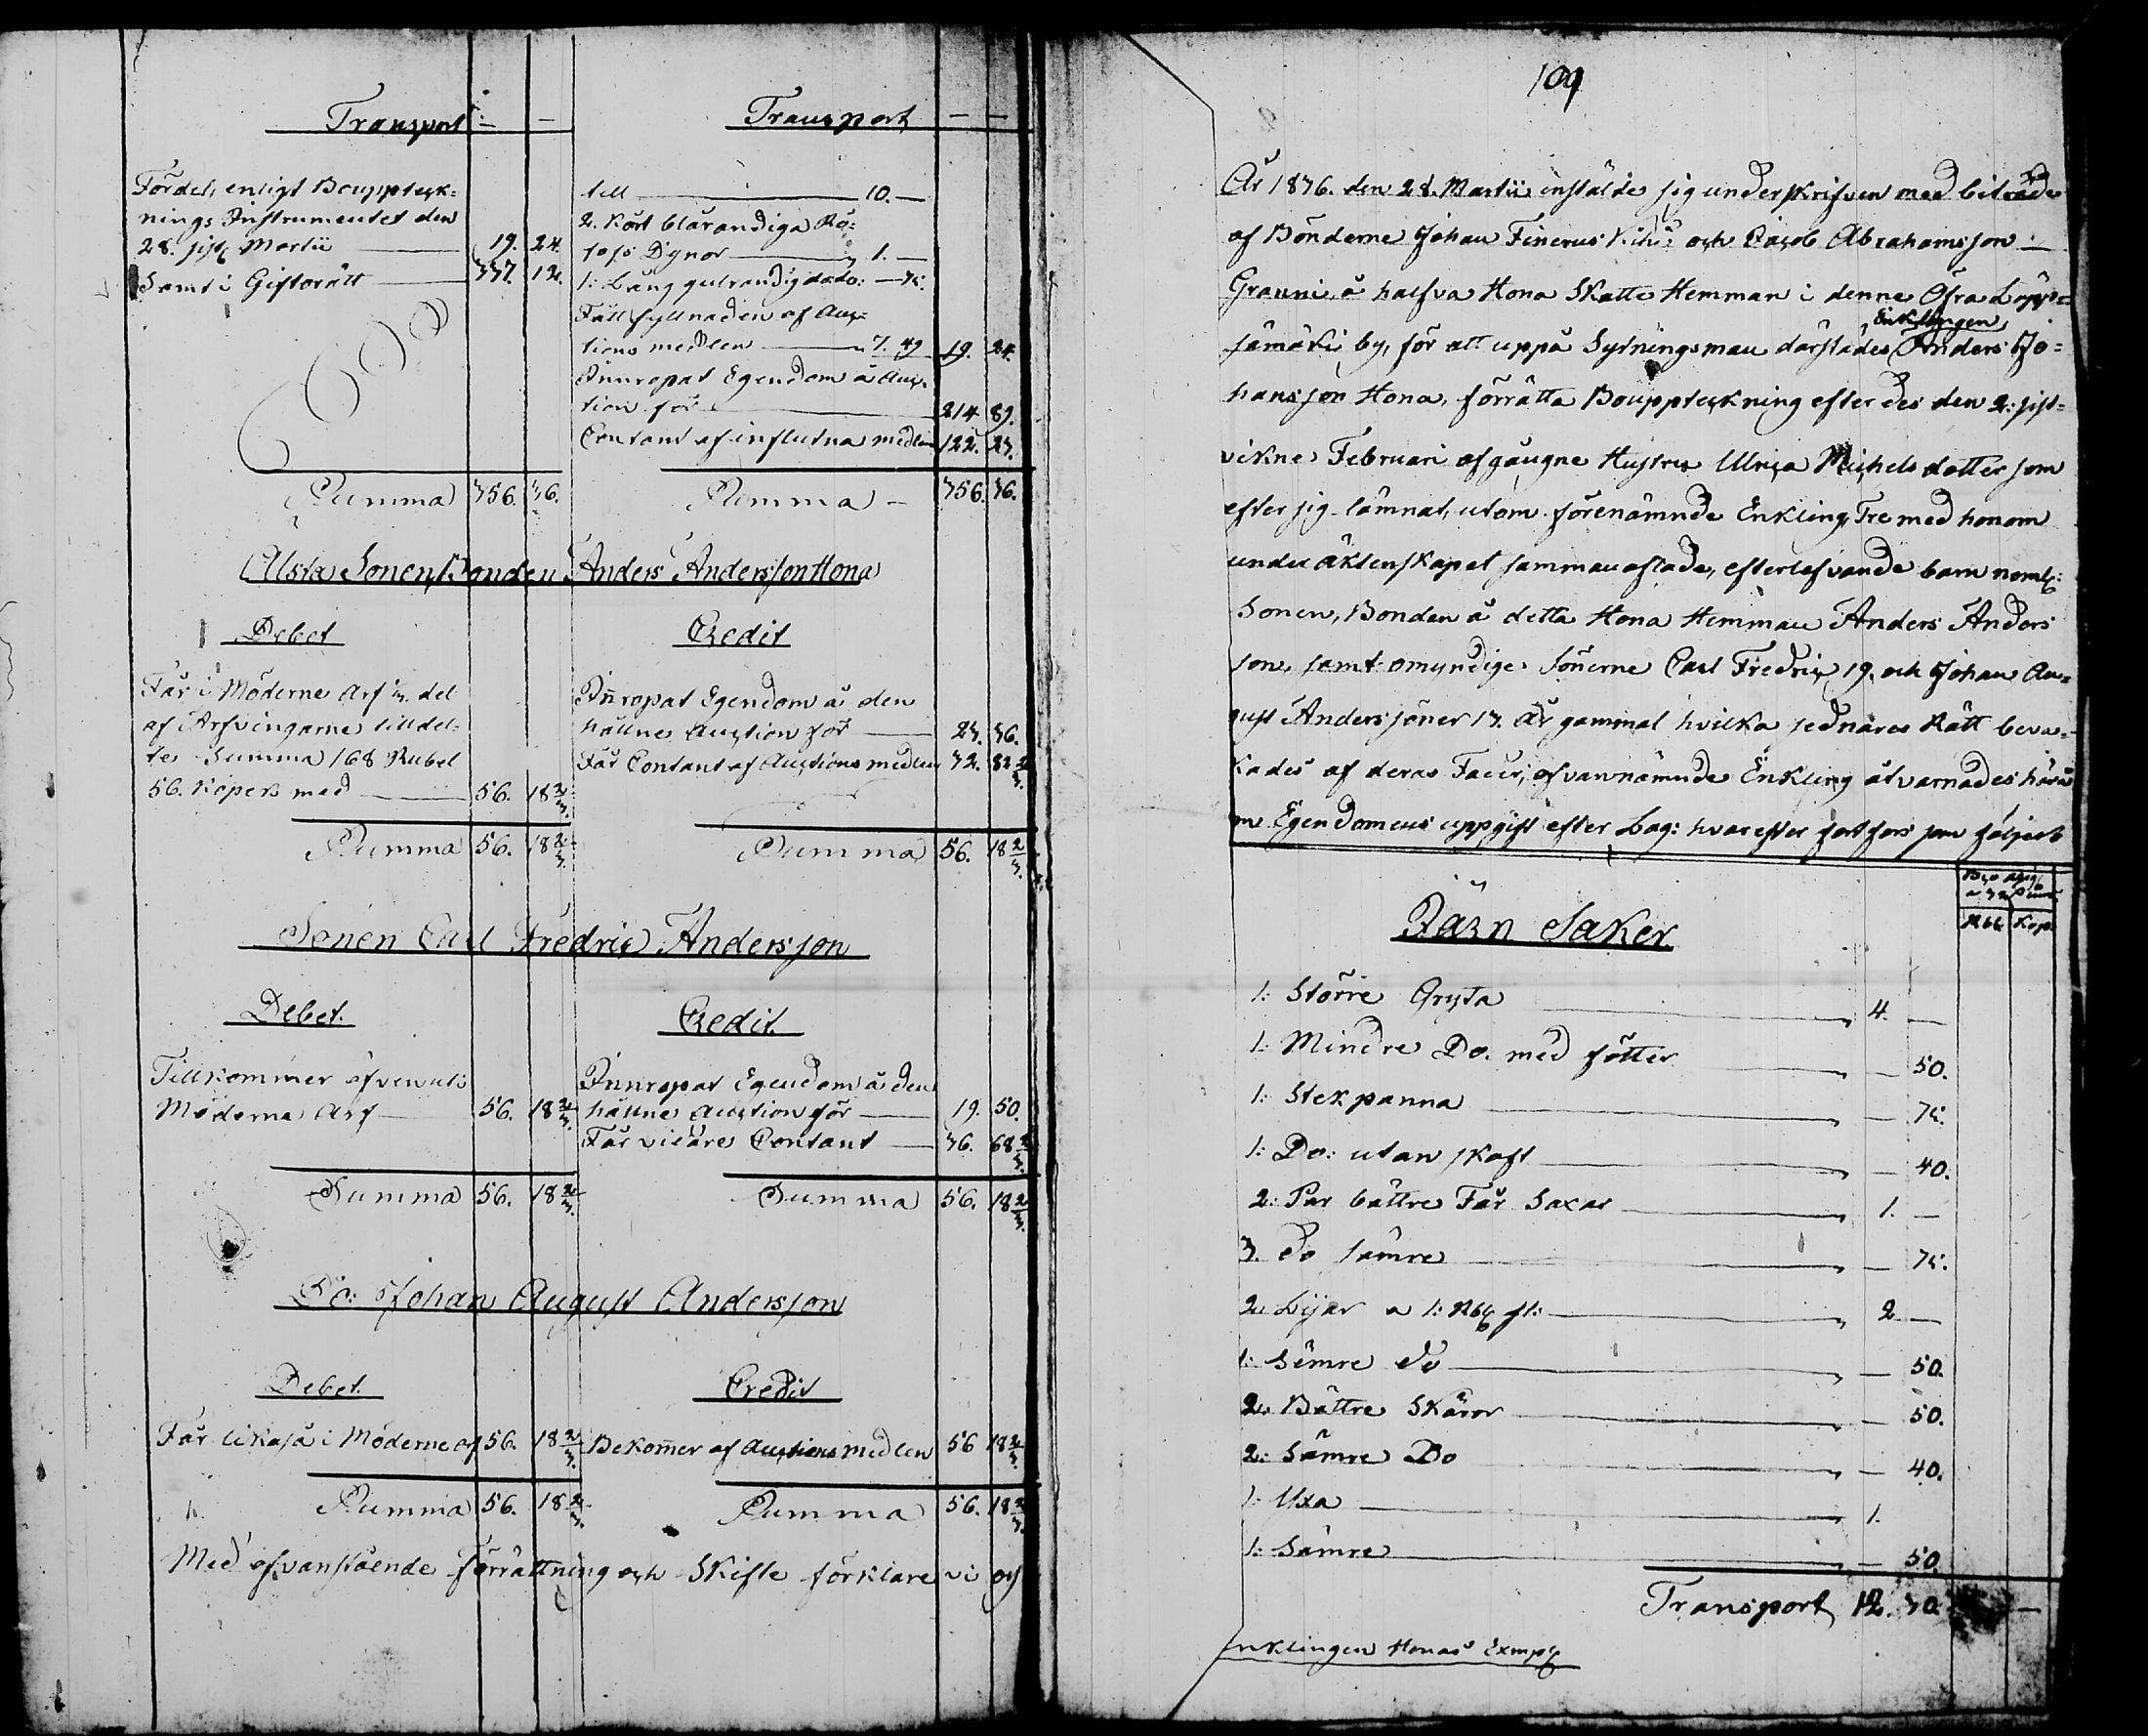 Transport — —
Fördel, enligt Boupptek=
nings Instrumentet den
28. sistl Martii — 19. 24.
Samt i Giftorätt — 337. 12.
Summa 356. 36.
Transport — —
till — 10. —
2. Kort blårandiga Rö=
Dynor — 1. —
1: Lång gulrandig dato: — 75.
Fällfyllnaden af Auc=
tions medlen — 7. 49 19. 24.
Innropat Egendom å Auc=
tion för — 214. 89.
Contant af influtna medlen 122. 23.
Summa — 356. 36.
Älsta Sonen, Bonden Anders Andersson Hona
Debet
Får i Möderne Arf 1/3. del
af Arfvingarne tilldel=
te Summa 168 Rubel
56. Kopek med — 56. 18 2/3.
Summa 56. 18 2/3.
Credit
Innropat Egendom å den
hållne Auction för — 23. 36.
Får Contant af Auctions medlen 32. 82 2/3.
Summa 56. 18 2/3.
Sonen Carl Fredric Andersson
Debet.
Tillkommer äfven uti
Möderne Arf — 56. 18 2/3.
Summa 56. 18 2/3.
Credit.
Innropat Egendom å den
hållne Auction för — 19. 50.
Får vidare Contant — 36. 68 2/3.
Summa 56. 18 2/3.
Do: Johan August Andersson
Debet.
Får likaså i Möderne arf 56. 18 2/3.
Summa 56. 18 2/3.
Credit
Bekommer af Auctions medlen 56 18 2/3.
Summa 56. 18 2/3.
Med ofvanstående förrättning och Skifte förklare vi oss
109
År 1836. den 28. Martii instälde sig underskrifven med biträde
af Bönderne Johan Finerus och Jacob Abrahamsson
Granni, å halfva Hona Skatte Hemman i denne Öfra Lapp=
Enklingen
by, för att uppå Sytningsman därstädes Anders Jo=
hansson Hona, förrätta Bouppteckning efter des den 2: sist=
vikne Februari afgångne Hustru Ulrica Michelsdotter som
efter sig lämnat, utom förenämnde Enkling, Tre med honom
under äktenskapet sammanaflade, efterlefvande barn neml:
Sonen, Bonden å detta Hona Hemman Anders Anders
son, samt omyndige Sönerne Carl Fredric 19. och Johan Au=
gust Anderssöner 13. År gammal hvilka sednares Rätt beva=
kades af deras Fader; ofvannämnde Enkling åtvarnades här
om Egendomens uppgift efter Lag: hvarefter fortfors som följer
Rbl Kop.
Järn Saker
1: Större Gryta — 4. —
1: Mindre Do. med fötter — 50.
1: Stekpanna — 75.
1: Do: utan skaft — 40.
2: Par bättre Får Saxar — 1. —
3. do sämre — 75.
2. Lijar a 1: Rbl st: — 2 —
1: Sämre do — 50.
2. Bättre Skäror — 50.
2: Sämre Do — 40.
1: Yxa — 1.
1: Sämre — 50.
Transport 12. 30.
Enklingen Honas Exmpl